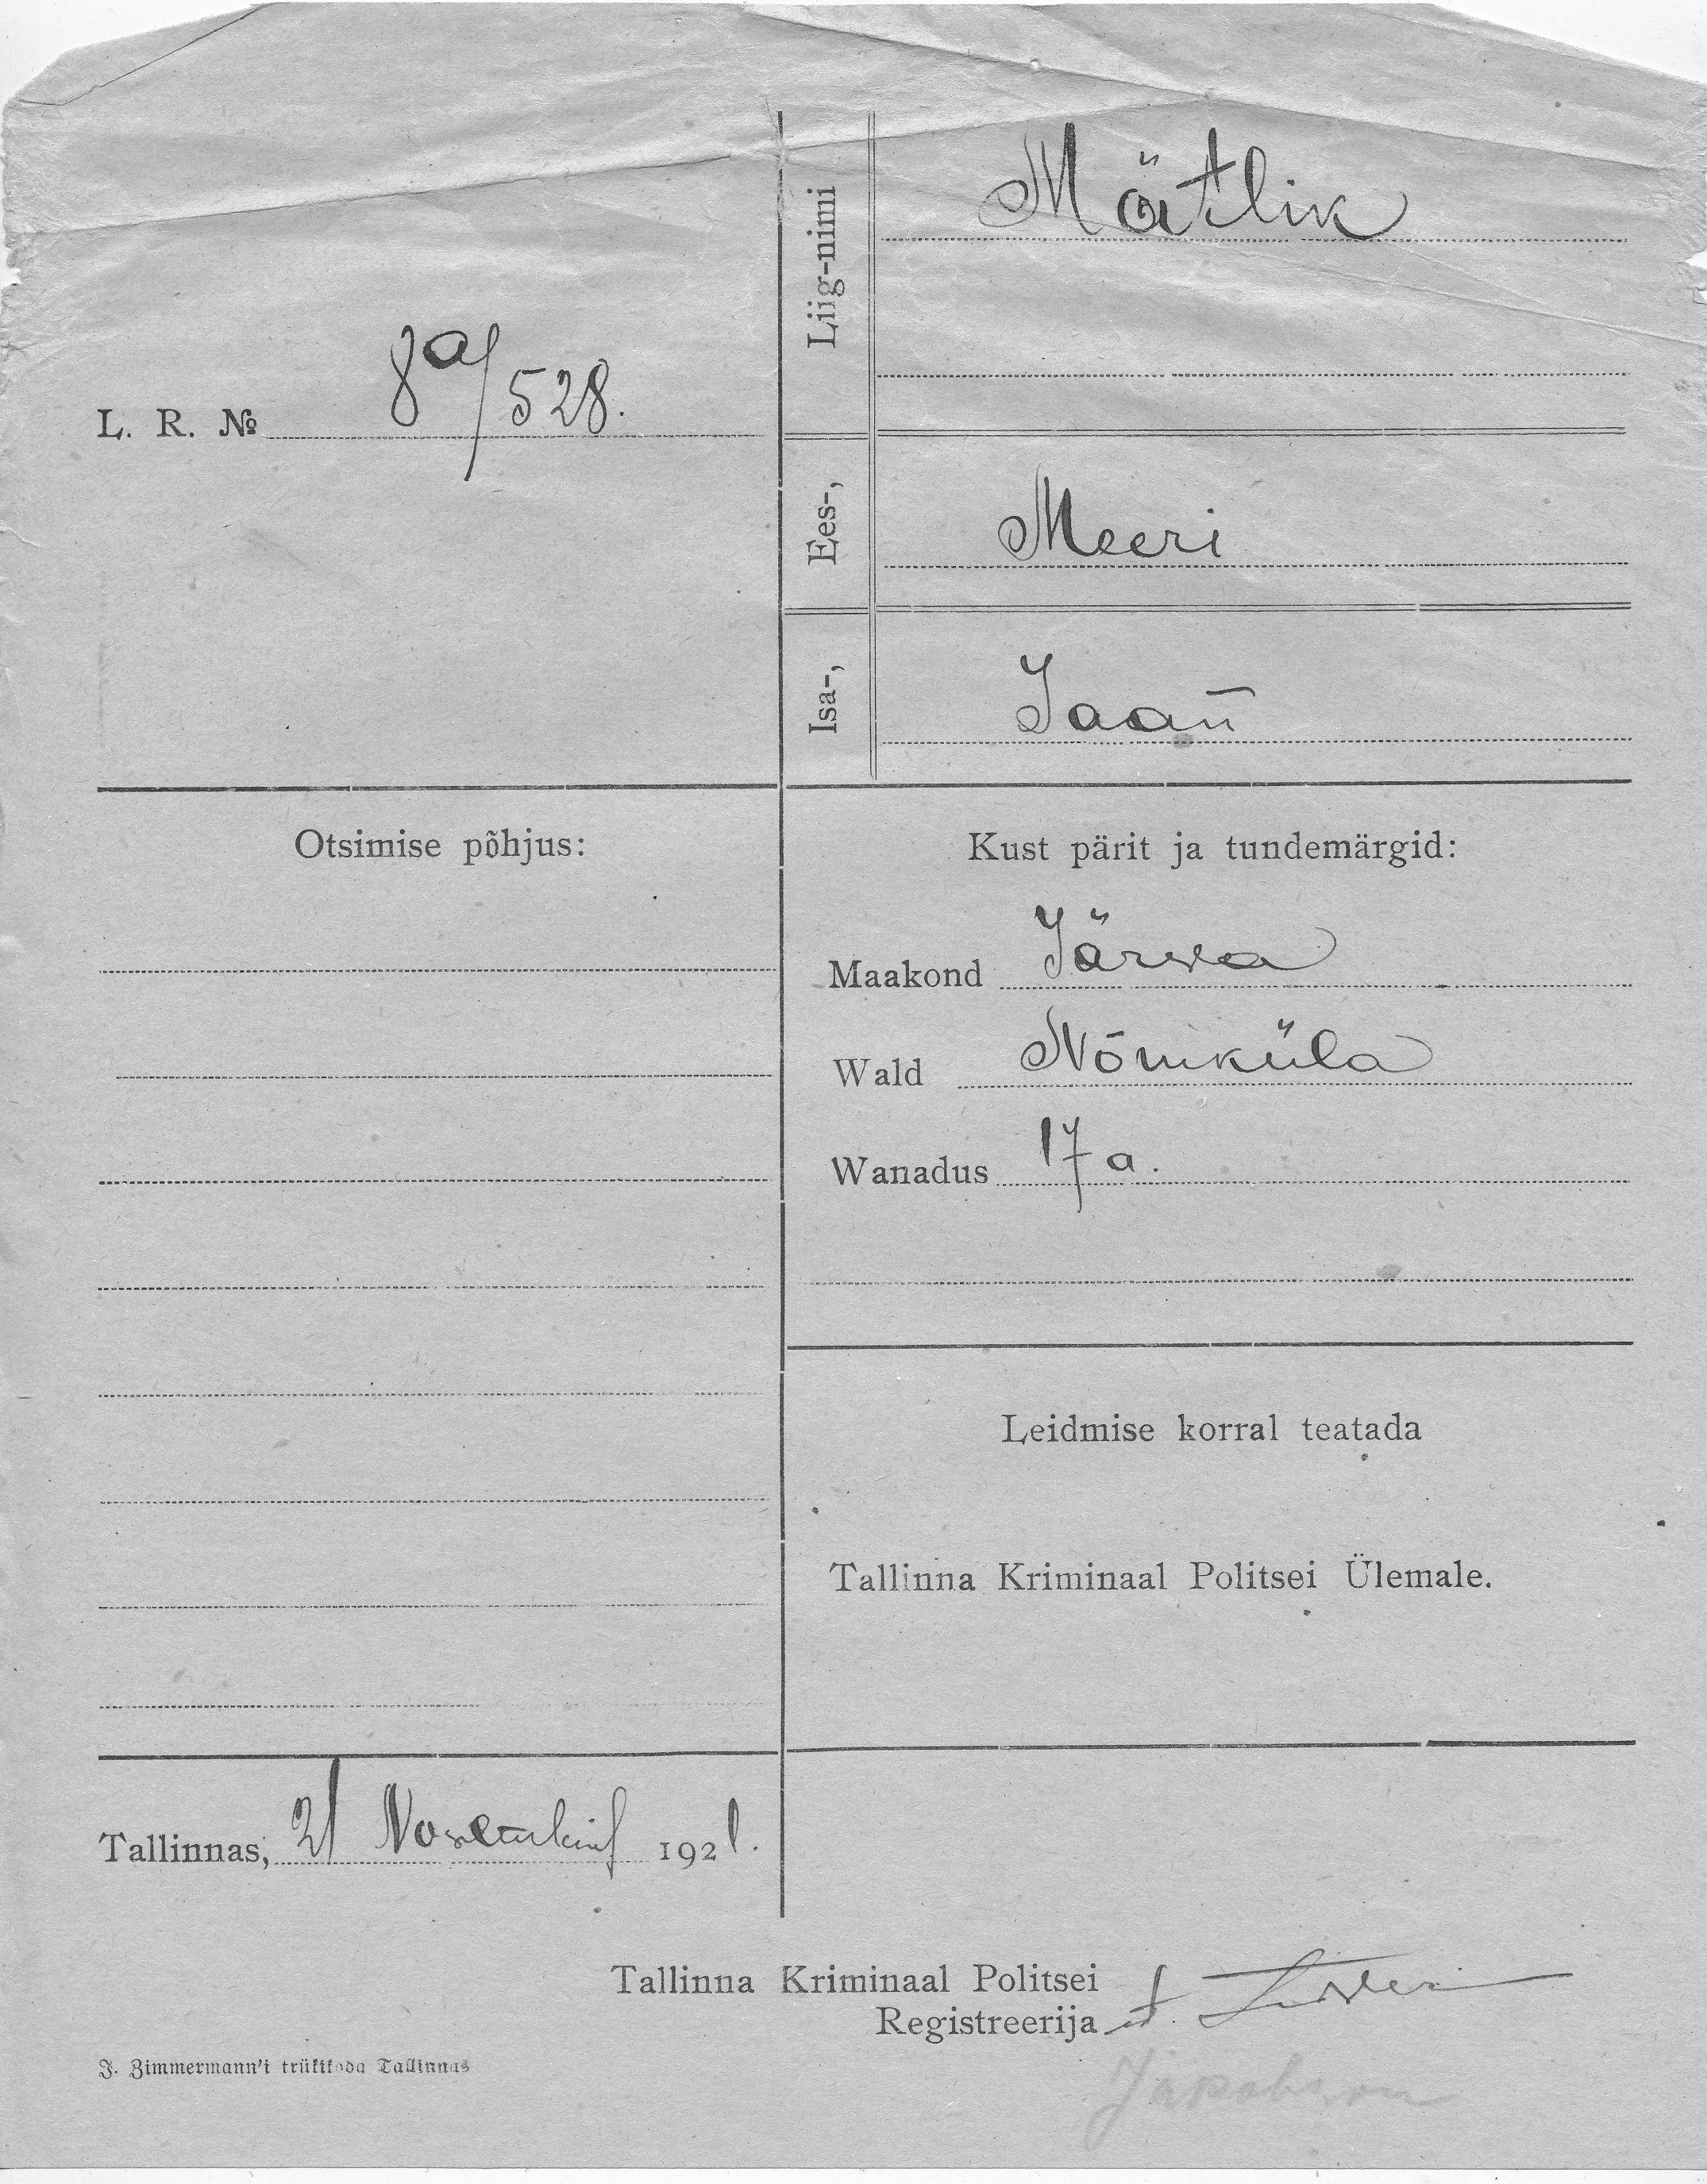 Liig-nimi Mätlik
L. R. № 8a/528.
Ees-, Meeri
Isa-, Jaan
Otsimise põhjus:
Kust pärit ja tundemärgid:
Maakond Järwa
Wald Nõmküla
Wanadus 17 a.
Leidmise korral teatada
Tallinna Kriminaal Politsei Ülemale.
Tallinnas, 21 Novembril 1921.
Tallinna Kriminaal Politsei
Registreerija
J. Zimmermann'i trükikoda Tallinnas
Jakobson